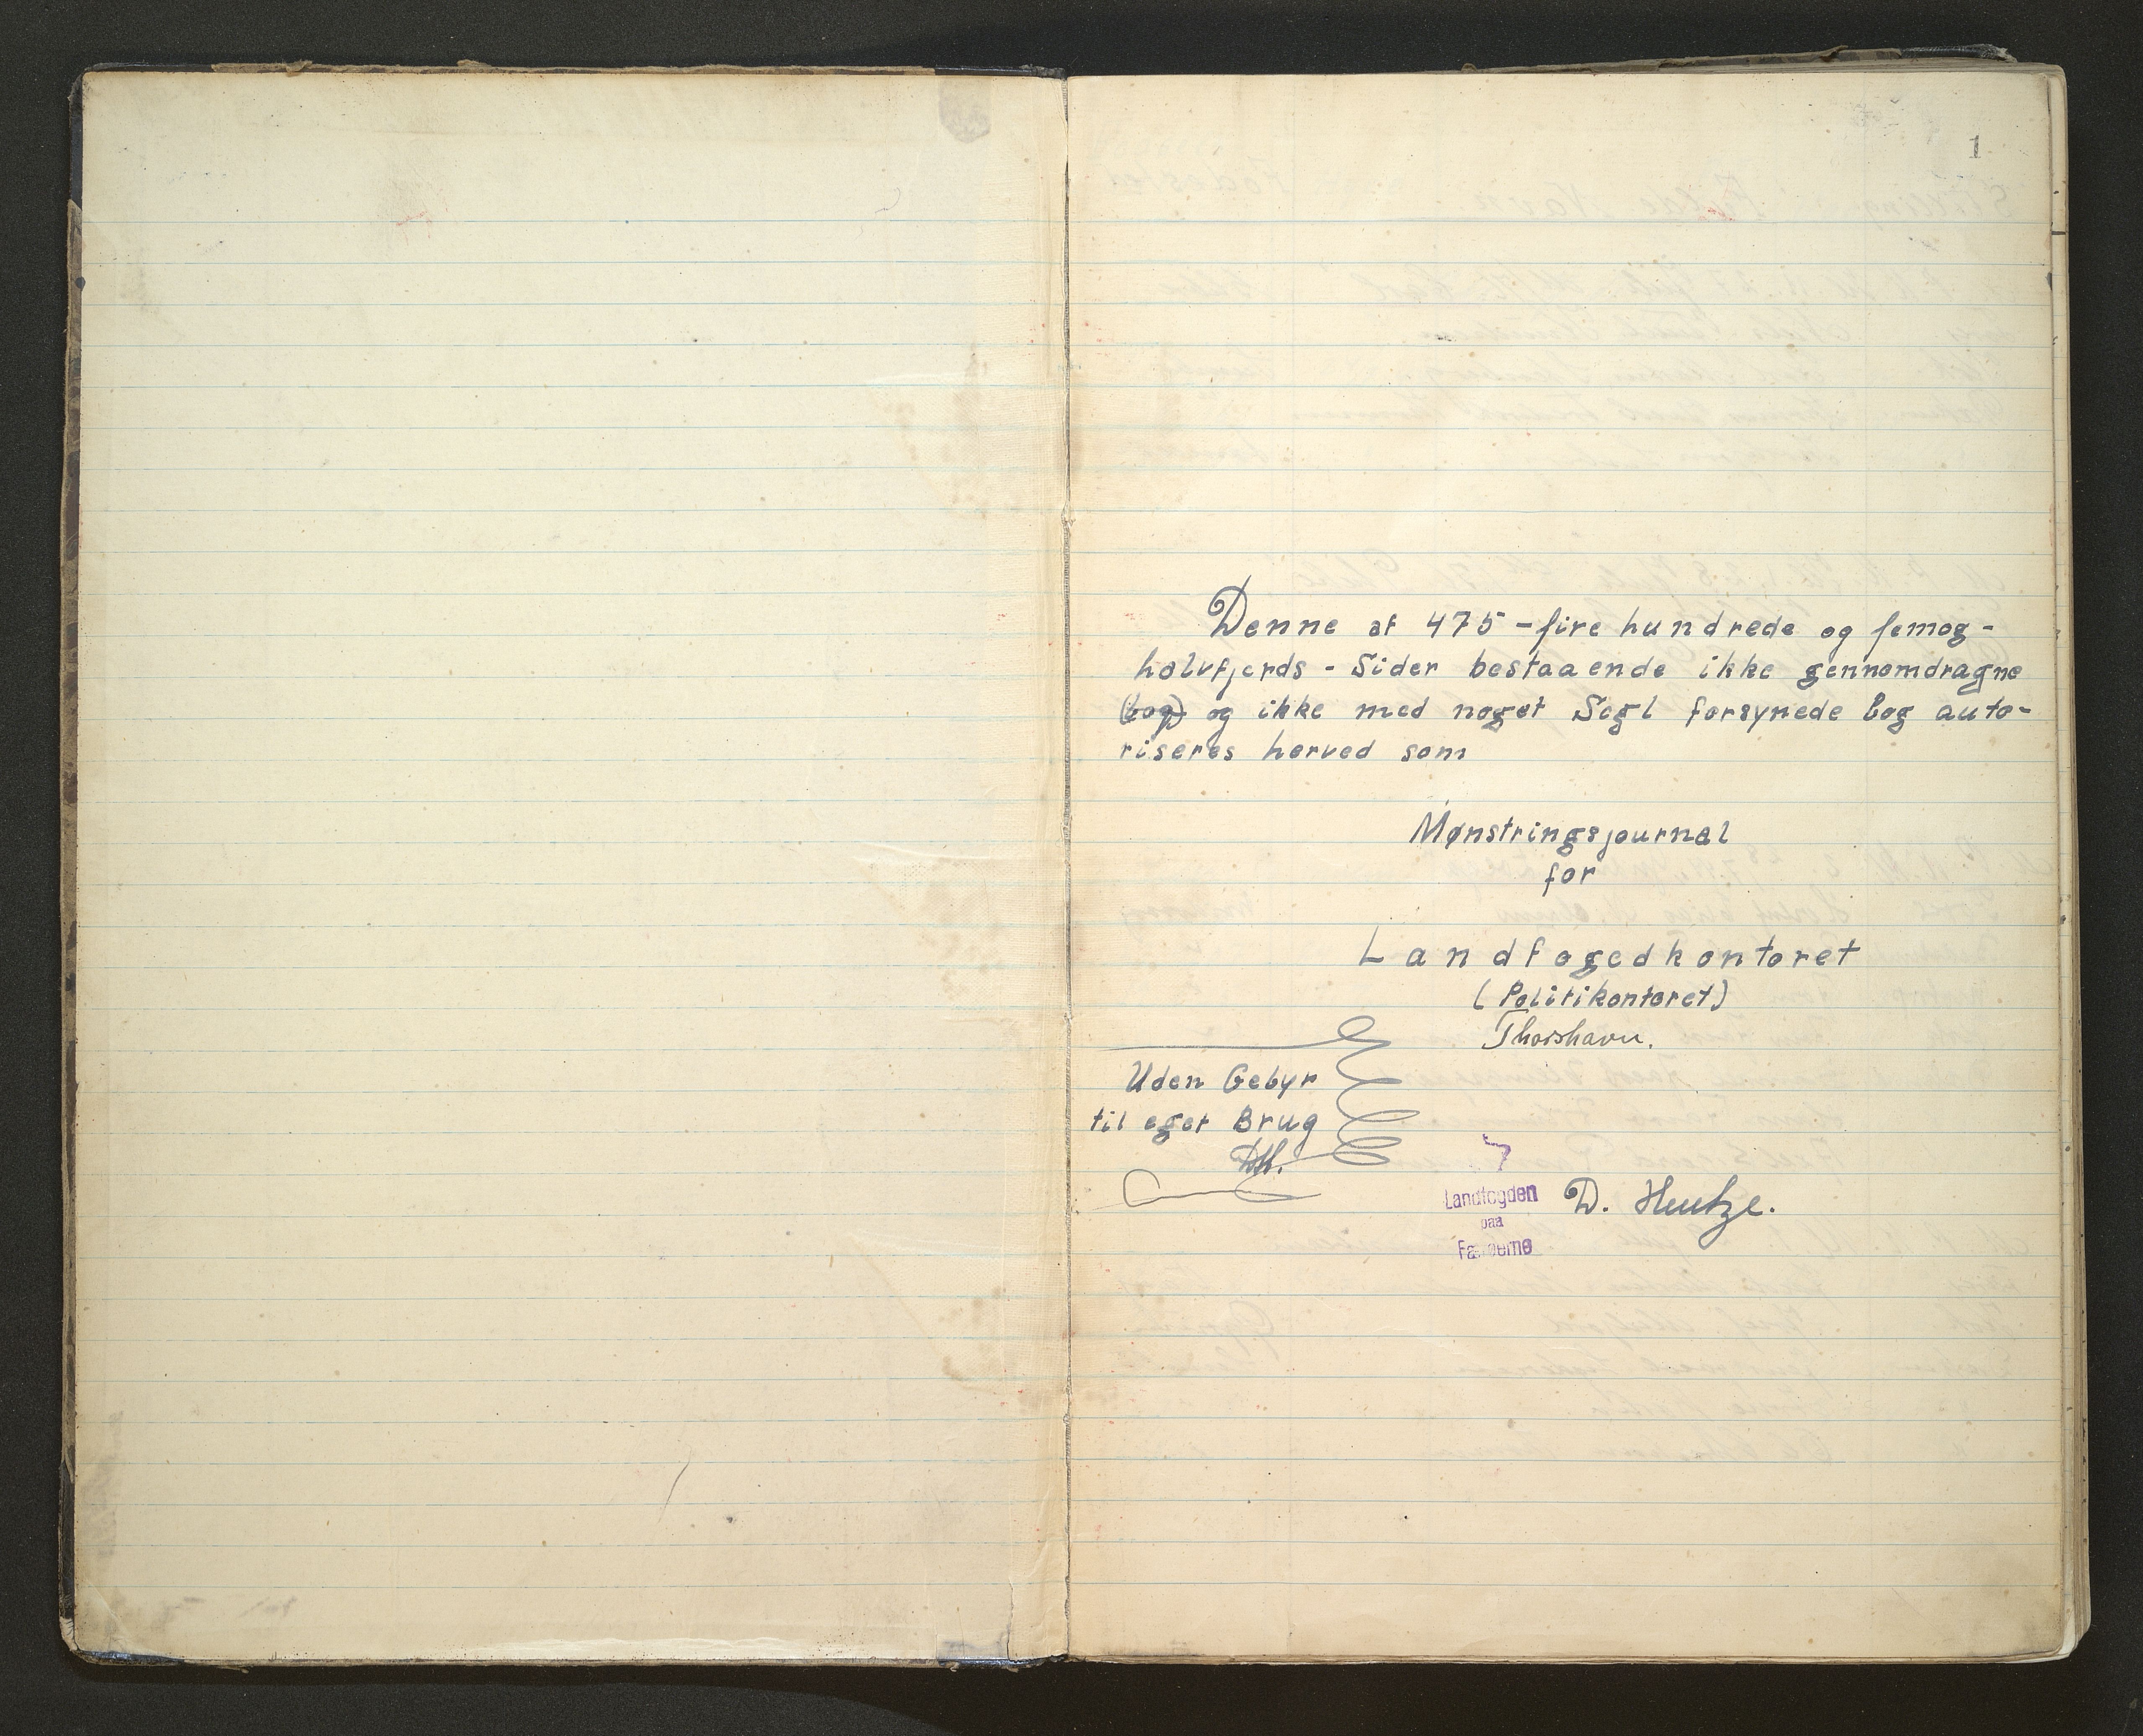 1
Denne af 475 - fire hundrede og femog-
halvfjerds - Sider bestaaende ikke gennemdragne
(bog) og ikke med noget Segl forsynede bog auto-
riseres herved som
Mønstringsjournal
for
Landfogedkontoret
(Politikontoret)
Thorshavn.
Uden Gebyr
til eget Brug
DH.
Landfogden
paa
Færøerne
D. Heutze.